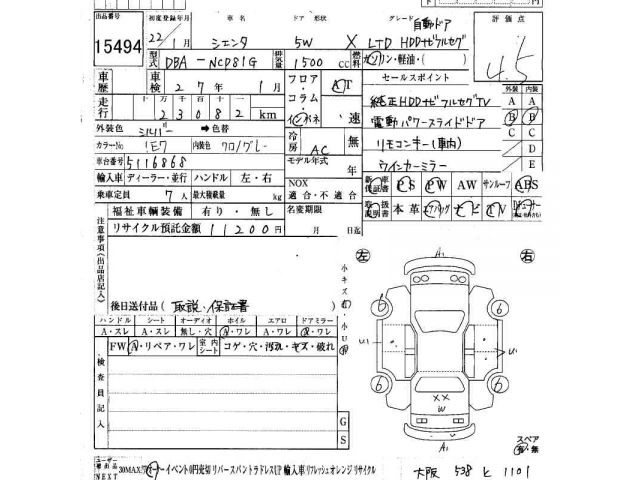 出品番号 初度登録年月 車名 ドア 形状 グレード 自動ドア 評価点
15494 22/1月 シエンタ 5W X LTD HDDナビフルセグ 4.5
型式 DBA-NCP81G 排気量 1500 CC 燃料 ガソリン・軽油・( )
車歴 車検 27年 1月 フロア・コラム・インパネ AT セールスポイント 外装 内装
走行 十万 万 千 百 十 一
23082 km 速
純正HDDナビフルセグTV A A
電動パワースライドドア B B
外装色 シルバー 色替 冷房 AC 無 リモコンキー(車内) C C
カラーNo 1E7 内装色 クロ/グレー D
車台番号 5116868 モデル年式 年 ウインカーミラー E
輸入車 ディーラー・並行 ハンドル 左・右 NOX 適合・不適合 新車保証書 PS PW AW サンルーフ ABS
乗車定員 7人 最大積載量 kg
福祉車輌装備 有り・無し 名変期限 取扱説明書 本革 エアバッグ ナビ TV
リサイクル預託金額 11200円 月 日迄
注意事項(出品店記入)
左 右
A1
小キズ有
小凹有
後日送付品( 取説・保証書 )
6 6
ハンドル シート オーディオ ホイル エアロ ドアミラー
A・スレ A・スレ 無し・穴 A・ワレ A・ワレ A・ワレ
FW A・リペア・ワレ 室内シート コゲ・穴・汚れ・キズ・破れ
U1 U1
検査員記入
6 6
XX
W
G
S
A1
スペア
有・無
NEXT 30MAX ワーナーイベント 0円売切 リバース パントラ ドレスUP 輸入車 リフレッシュ オレンジ リサイクル
大阪 538 と 1101